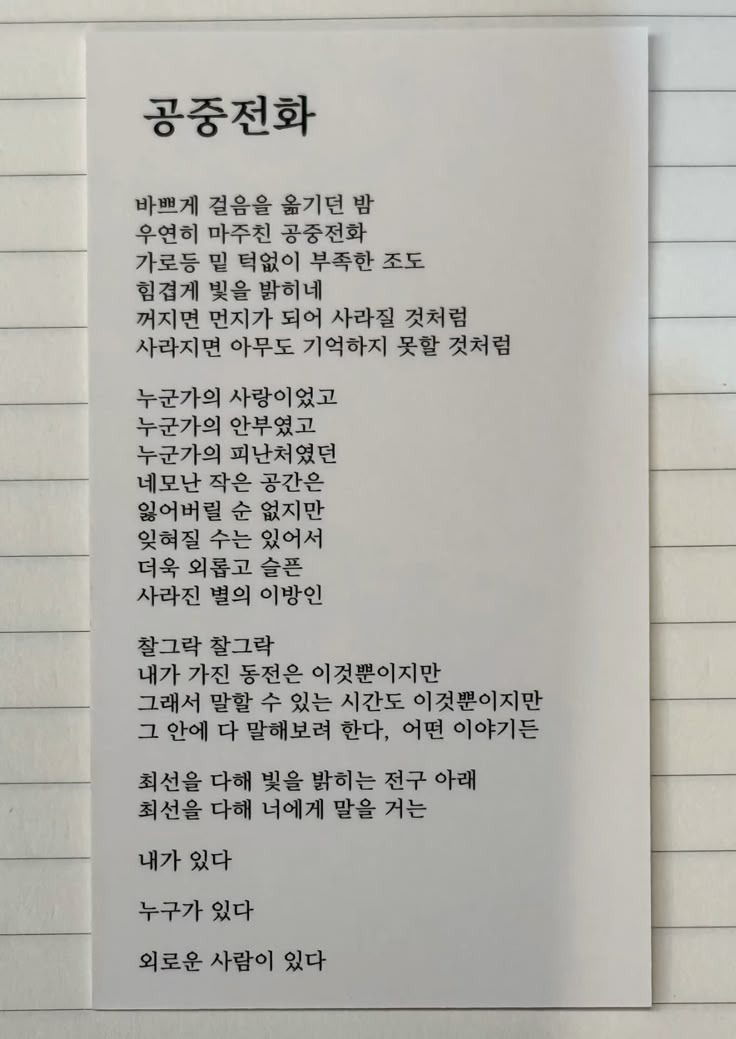 공중전화
바쁘게 걸음을 옮기던 밤
우연히 마주친 공중전화
가로등 밑 턱없이 부족한 조도
힘겹게 빛을 밝히네
꺼지면 먼지가 되어 사라질 것처럼
사라지면 아무도 기억하지 못할 것처럼
누군가의 사랑이었고
누군가의 안부였고
누군가의 피난처였던
네모난 작은 공간은
잃어버릴 순 없지만
잊혀질 수는 있어서
더욱 외롭고 슬픈
사라진 별의 이방인
찰그락 찰그락
내가 가진 동전은 이것뿐이지만
그래서 말할 수 있는 시간도 이것뿐이지만
그 안에 다 말해보려 한다, 어떤 이야기든
최선을 다해 빛을 밝히는 전구 아래
최선을 다해 너에게 말을 거는
내가 있다
누구가 있다
외로운 사람이 있다